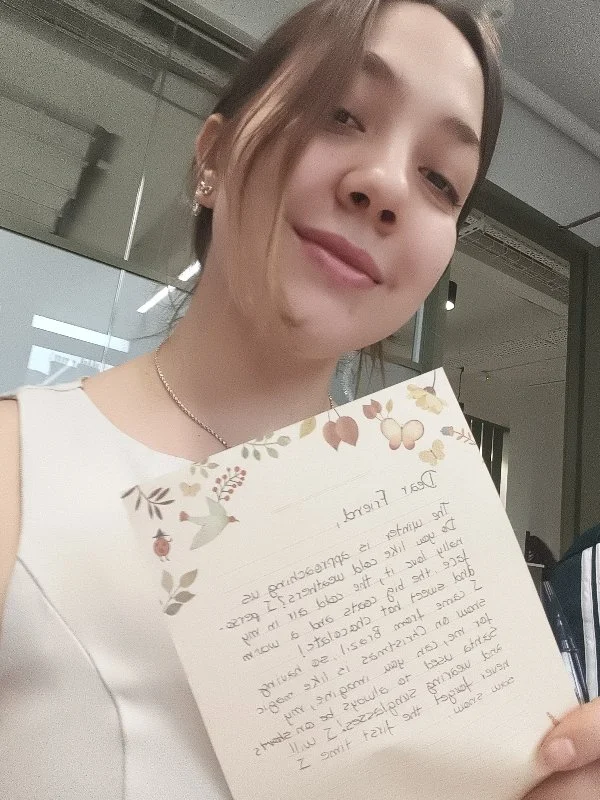 Dear Friend,
The winter is approaching us
Do you like cold weathers? I perso-
nally love it, the cold air in my
face, the big coats and a warm
and sweet hot chocolate!
I came from Brazil, so having
snow on Christmas is like magic
for me, can you imagine, my
Santa used to always be on shorts
and wearing sunglasses! I will
never forget the first time I
saw snow